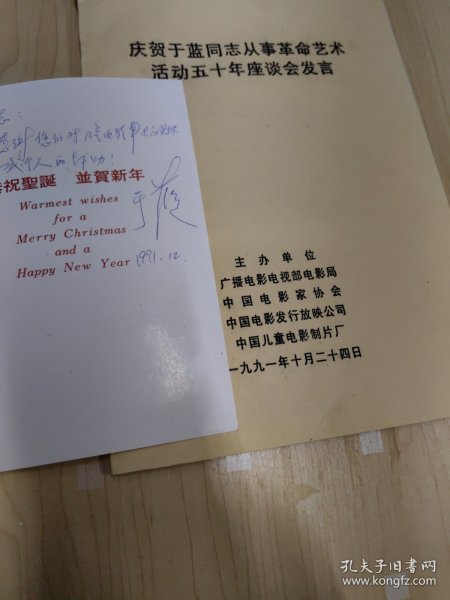 庆贺于蓝同志从事革命艺术
活动五十年座谈会发言
主办单位
广播电影电视部电影局
中国电影家协会
中国电影发行放映公司
中国儿童电影制片厂
一九九一年十月二十四日
志：
感谢您们对
个人的帮助！
恭祝聖誕 並賀新年
Warmest wishes
for a
Merry Christmas
and a
Happy New Year
于蓝
1991.12.
孔夫子旧书网
www.kongfz.com